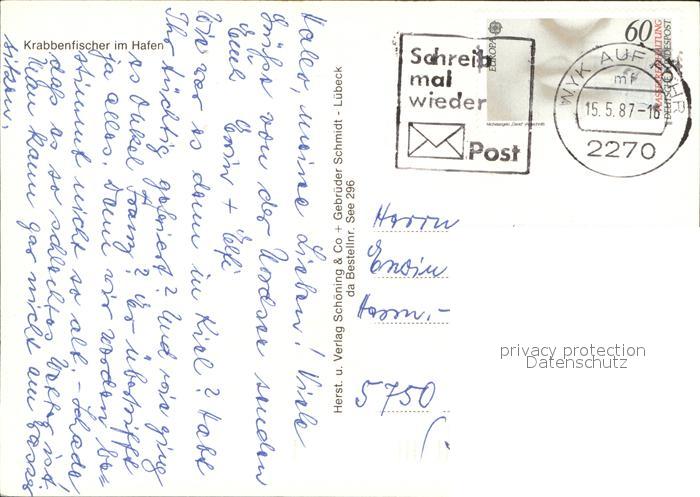 Krabbenfischer im Hafen
Hallo, Meine Lieben! Viele
Grüße von der Nordsee senden
Euch Erwin + Elfi
Wie war es denn in Kiel? Habt
Ihr tüchtig gefeiert? Und wie ging
es Onkel Franz? Er übertrifft
ja alles. Denn wir werden be=
stimmt nicht so alt. - Schade
daß es so schlechtes Wetter ist!
Man kann gar nicht am Wasser
sitzen.
Herst. u. Verlag Schöning & Co + Gebrüder Schmidt - Lübeck
da Bestellnr. See 296
Schreib
mal
wieder
Post
EUROPA
60
DEUTSCHE BUNDESPOST
WYK AUF FÖHR
mf
15.5.87-16
2270
Herrn
Erwin
Herrn.-
5750
privacy protection
Datenschutz